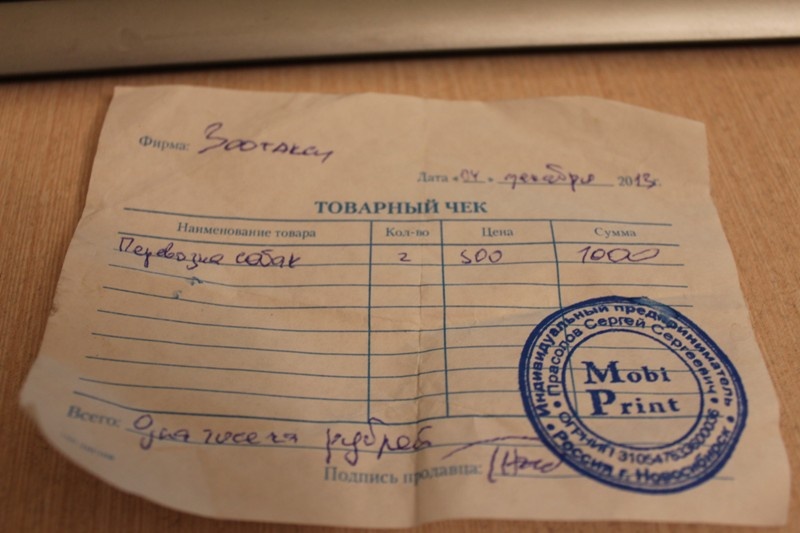 Фирма: Зоотакси
Дата «04» декабря 2013г.
ТОВАРНЫЙ ЧЕК
Наименование товара Кол-во Цена Сумма
Перевозка собак 2 500 1000
Всего: Одна тысяча рублей
Подпись продавца:
Индивидуальный предприниматель
Прасолов Сергей Сергеевич
Mobi
Print
ОГРНИП 310547633600036
Россия г. Новосибирск